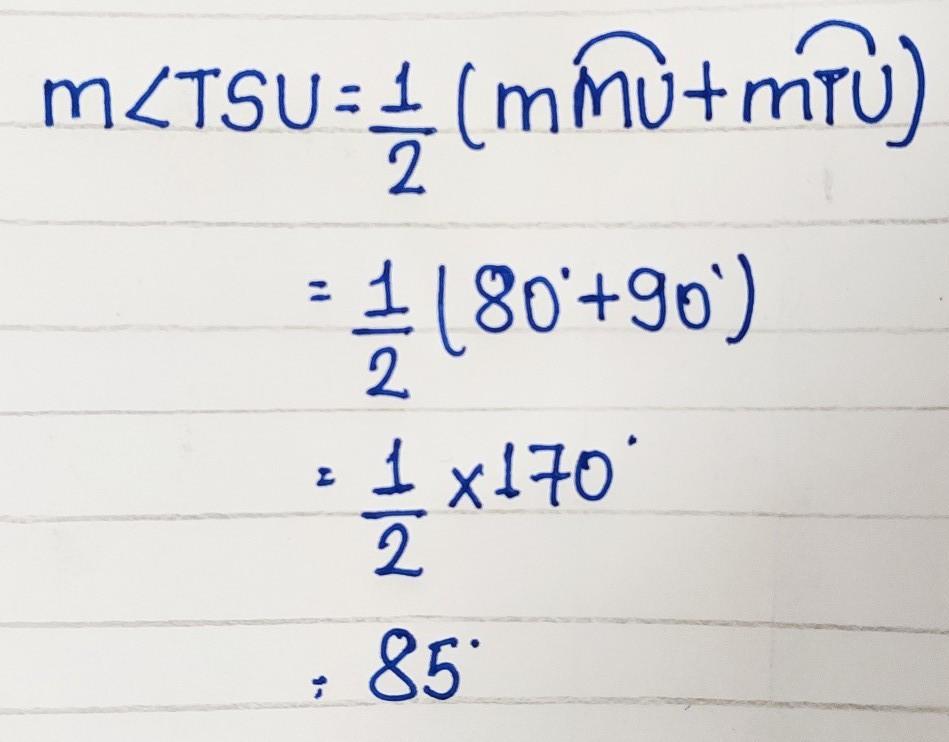 m∠TSU = 1/2 (m⌒MU + m⌒TU)
= 1/2 (80° + 90°)
= 1/2 × 170°
= 85°